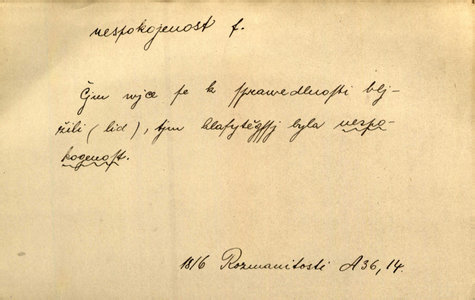 nespokojenost f.
Čjm wjce se k sprawedlnosti blj-
žili (lid), tjm hlasytěgssj byla nespo-
kogenost.
1816 Rozmanitosti A36, 14.